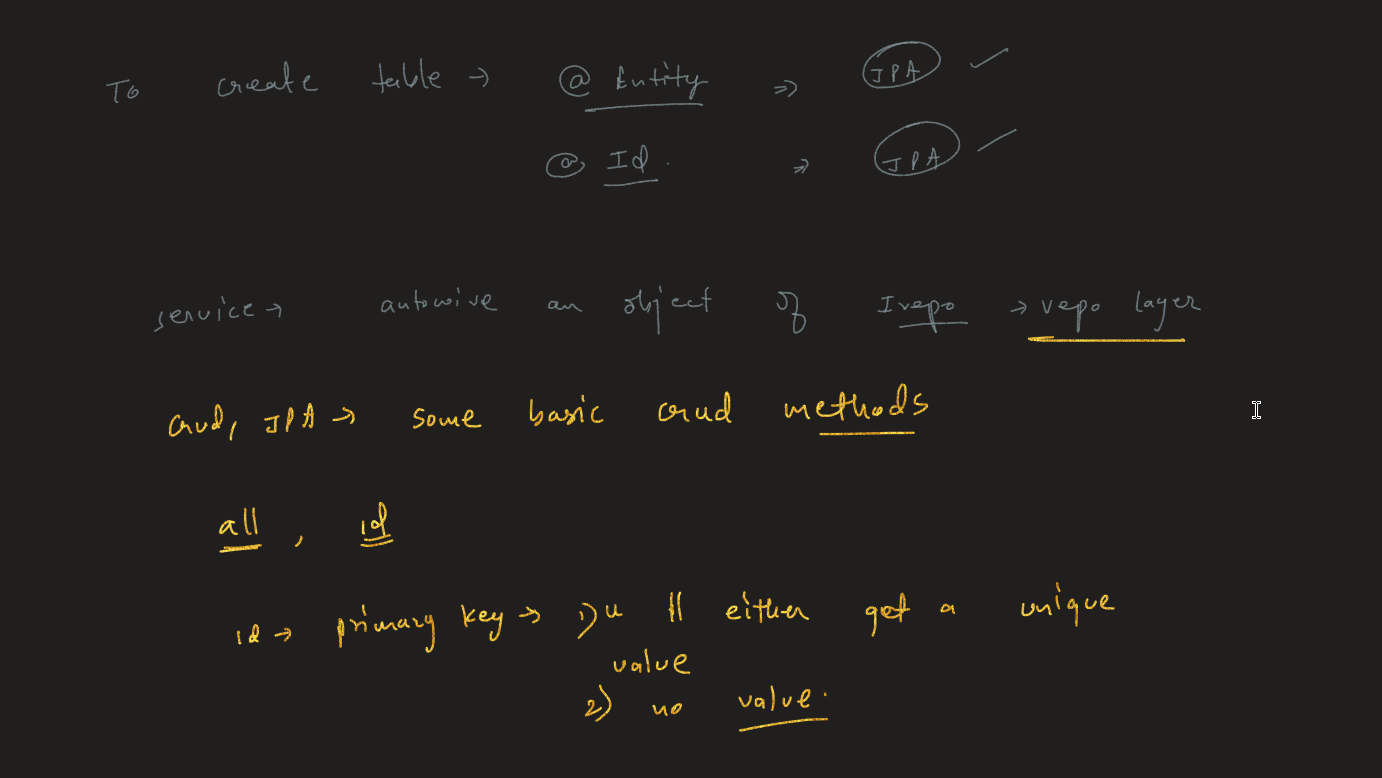 To create table → @ Entity ⇒ JPA ✓
@ Id. ⇒ JPA ✓
service → autowire an object of Irepo → repo layer
crud, JPA → some basic crud methods
all, id
id → primary key → 1) u || either get a unique
value
2) no value.